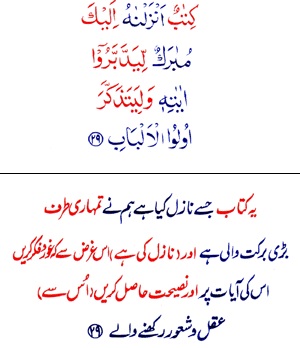 كِتٰبٌ اَنْزَلْنٰهُ اِلَيْكَ
مُبٰرَكٌ لِّيَدَّبَّرُوْۤا
اٰيٰتِهٖ وَلِيَتَذَكَّرَ
اُولُوا الْاَلْبَابِ ﴿۲۹﴾
یہ کتاب جسے نازل کیا ہے ہم نے تمہاری طرف
بڑی برکت والی ہے اور (نازل کی ہے) اس غرض سے کہ غور و فکر کریں
اس کی آیات پر اور نصیحت حاصل کریں (اُس سے)
عقل و شعور رکھنے والے ﴿۲۹﴾